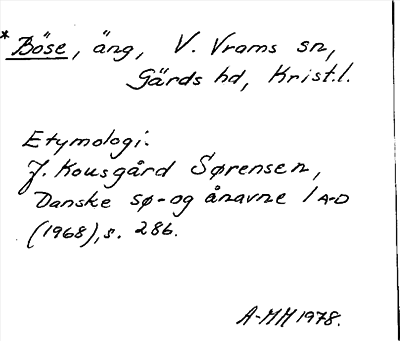 *Böse, äng, V. Vrams sn,
Gärds hd, Krist.l.
Etymologi:
J. Kousgård Sørensen,
Danske sø- og ånavne 1 A-D
(1968), s. 286.
A-MH 1978.